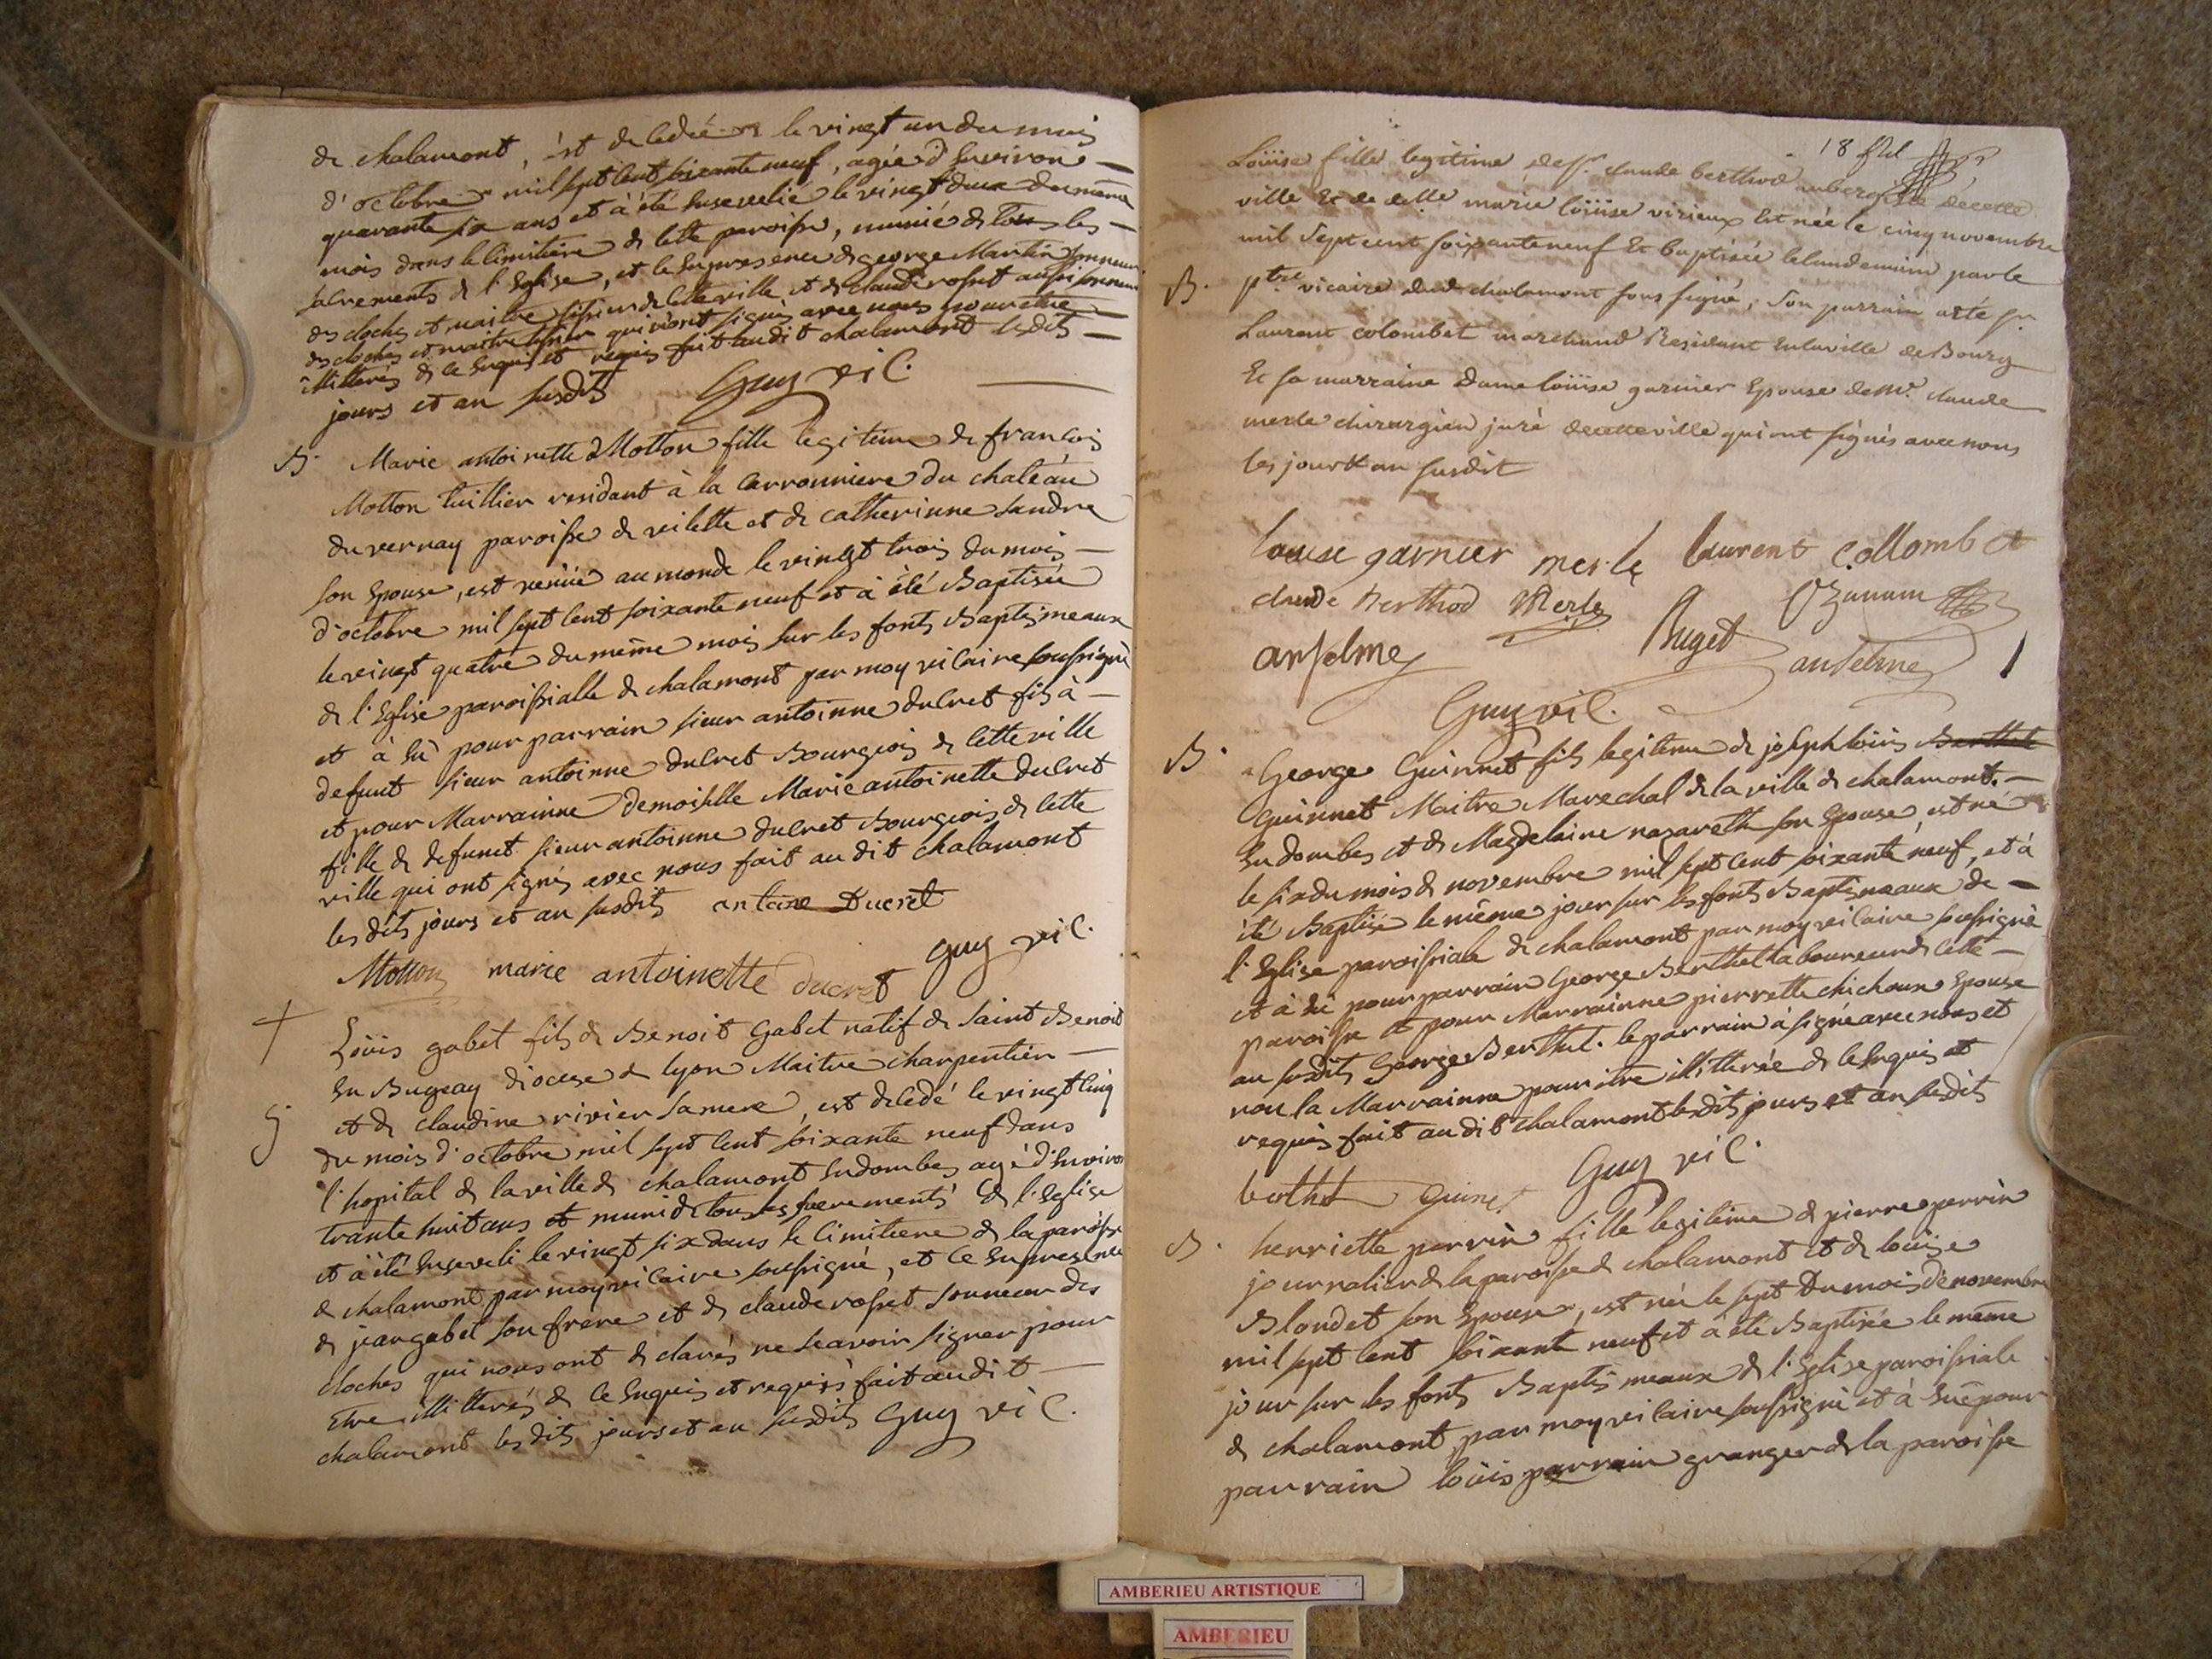 de chalamont, est decedeé le vingt un du mois
d'octobre mil sept cent soixante neuf, agée d'environ
quarante six ans et à été ensevelie le vingt deux du meme
mois dans le cimitiere de cette paroisse, munie de tous les
sacrements de l'Eglise, et ce en presence de george Martin sonneur
des cloches et maitre de cette ville et de claude rosset aussi sonneur
des cloches et maitre qui n'ont signés avec nous pour etre
illitterés de ce enquis et requis fait audit chalamont lesdits
jours et an susdits Guy vic.
B. Marie antoinette Motton fille legitime de françois
Motton tuillier residant à la carronniere du chateau
du vernay paroisse de vilette et de catherinne sandre
son Epouse, est venüe au monde le vingt trois du mois
d'octobre mil sept cent soixante neuf et à été Baptisée
le vingt quatre du même mois sur les fonts Baptismeaux
de l'Eglise paroissialle de chalamont par moy vicaire soussigné
et à Eû pour parrain sieur antoinne ducret fils à
defunt sieur antoinne ducret Bourgeois de cette ville
et pour Marrainne demoiselle Marie antoinette ducret
fille de defunct sieur antoinne ducret Bourgeois de cette
ville qui ont signés avec nous fait au dit chalamont
les dits jours et an susdits antoine Ducret
Motton marie antoinette ducret Guy vic.
Loüis gabet fils de Benoit Gabet natif de saint Benoit
En Bugeay diocese de lyon Maitre charpentier
et de claudine rivier sa mere, est decedé le vingt cinq
du mois d'octobre mil sept cent soixante neuf dans
l'hopital de la ville de chalamont En dombes agé d'Environ
trante huit ans et muni de tous les sacrements de l'Eglise
et à été Enseveli le vingt six dans le cimitiere de la paroisse
de chalamont par moy vicaire soussigné, et ce En presence
de jean gabet son frere et de claude rosset sonneur des
cloches qui nous ont declarés ne scavoir signer pour
etre illitterés de ce Enquis et requis fait audit
chalamont les dits jours et an susdits Guy vic.
18
Loüise fille legitime de Sr. claude berthod aubergiste de cette
ville Et de delle marie loüise virieux Est née le cinq novembre
mil Sept cent soixante neuf Et baptisée le landemain par le
B. ptre vicaire dud. chalamont sous signé, Son parrain a été Sr.
Laurent colombet marchand Residant En la ville de Bourg
Et sa marraine dame loüise garnier Epouse de Mr. claude
merle chirurgien juré de cette ville qui ont signés avec nous
les jour et an susdit
louise garnier merle laurent collombet
claude berthod Merle Ozanam
anselme Buget anselme
Guy vic.
B. George Guinnet fils legitime de joseph loüis Berthet
Guinnet Maitre Marechal de la ville de chalamont
En dombes et de Magdelaine nazareth son Epouse, est né
le six du mois de novembre mil sept cent soixante neuf, et à
été Baptisé le même jour sur les fonts Baptismeaux de
l'Eglise paroissiale de chalamont par moy vicaire soussigné
et à Eü pour parrain George Berthet laboureur de cette
paroisse et pour Marrainne pierrette chichoux Epouse
au susdit George Berthet. le parrain à signé avec nous et
non la Marrainne pour être illitterée de ce Enquis et
requis fait au dit chalamont lesdits jours et an susdits
berthet guinet Guy vic.
B. henriette perrin fille legitime de pierre perrin
journalier de la paroisse de chalamont et de loüise
Blondet son Epouse, est née le sept du mois de novembre
mil sept cent soixante neuf et à été Baptisée le même
jour sur les fonts Baptismeaux de l'Eglise paroissiale
de chalamont par moy vicaire soussigné et à Eüe pour
parrain loüis perrin granger de la paroisse
AMBERIEU ARTISTIQUE
AMBERIEU